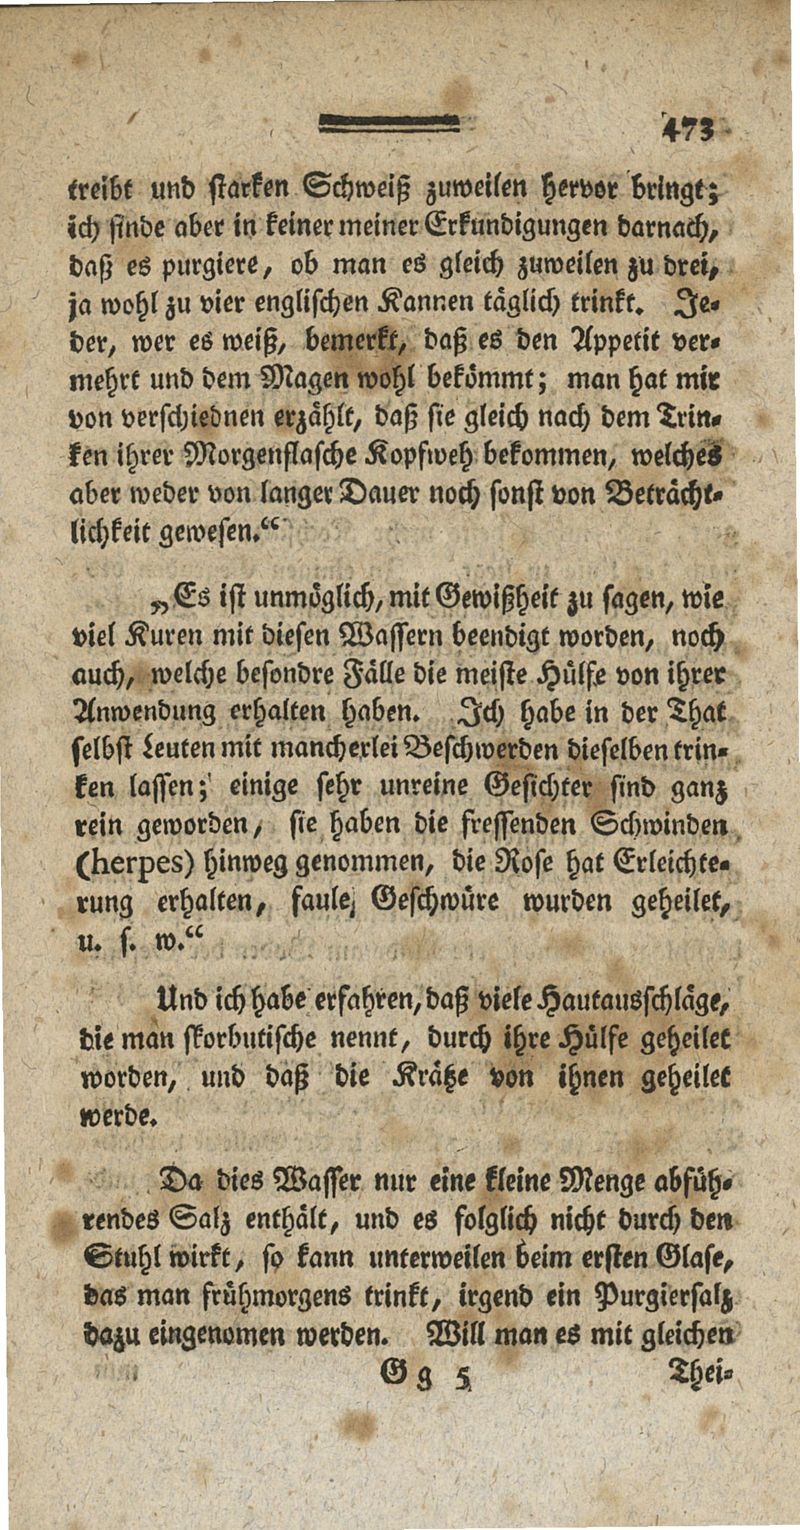 473
treibt und starken Schweiß zuweilen hervor bringt;
ich finde aber in keiner meiner Erkundigungen darnach,
daß es purgiere, ob man es gleich zuweilen zu drei,
ja wohl zu vier englischen Kannen täglich trinkt. Je-
der, wer es weiß, bemerkt, daß es den Appetit ver-
mehrt und dem Magen wohl bekömmt; man hat mir
von verschiednen erzählt, daß sie gleich nach dem Trin-
ken ihrer Morgenflasche Kopfweh bekommen, welches
aber weder von langer Dauer noch sonst von Beträcht-
lichkeit gewesen.“
„Es ist unmöglich, mit Gewißheit zu sagen, wie
viel Kuren mit diesen Wassern beendigt worden, noch
auch, welche besondre Fälle die meiste Hülfe von ihrer
Anwendung erhalten haben. Ich habe in der That
selbst Leuten mit mancherlei Beschwerden dieselben trin-
ken lassen; einige sehr unreine Gesichter sind ganz
rein geworden, sie haben die fressenden Schwinden
(herpes) hinweg genommen, die Rose hat Erleichte-
rung erhalten, faule Geschwüre wurden geheilet,
u. s. w.“
Und ich habe erfahren, daß viele Hautausschläge,
die man skorbutische nennt, durch ihre Hülfe geheilet
worden, und daß die Krätze von ihnen geheilet
werde.
Da dies Wasser nur eine kleine Menge abfüh-
rendes Salz enthält, und es folglich nicht durch den
Stuhl wirkt, so kann unterweilen beim ersten Glase,
das man frühmorgens trinkt, irgend ein Purgiersalz
dazu eingenomen werden. Will man es mit gleichen
G g 5 Thei-